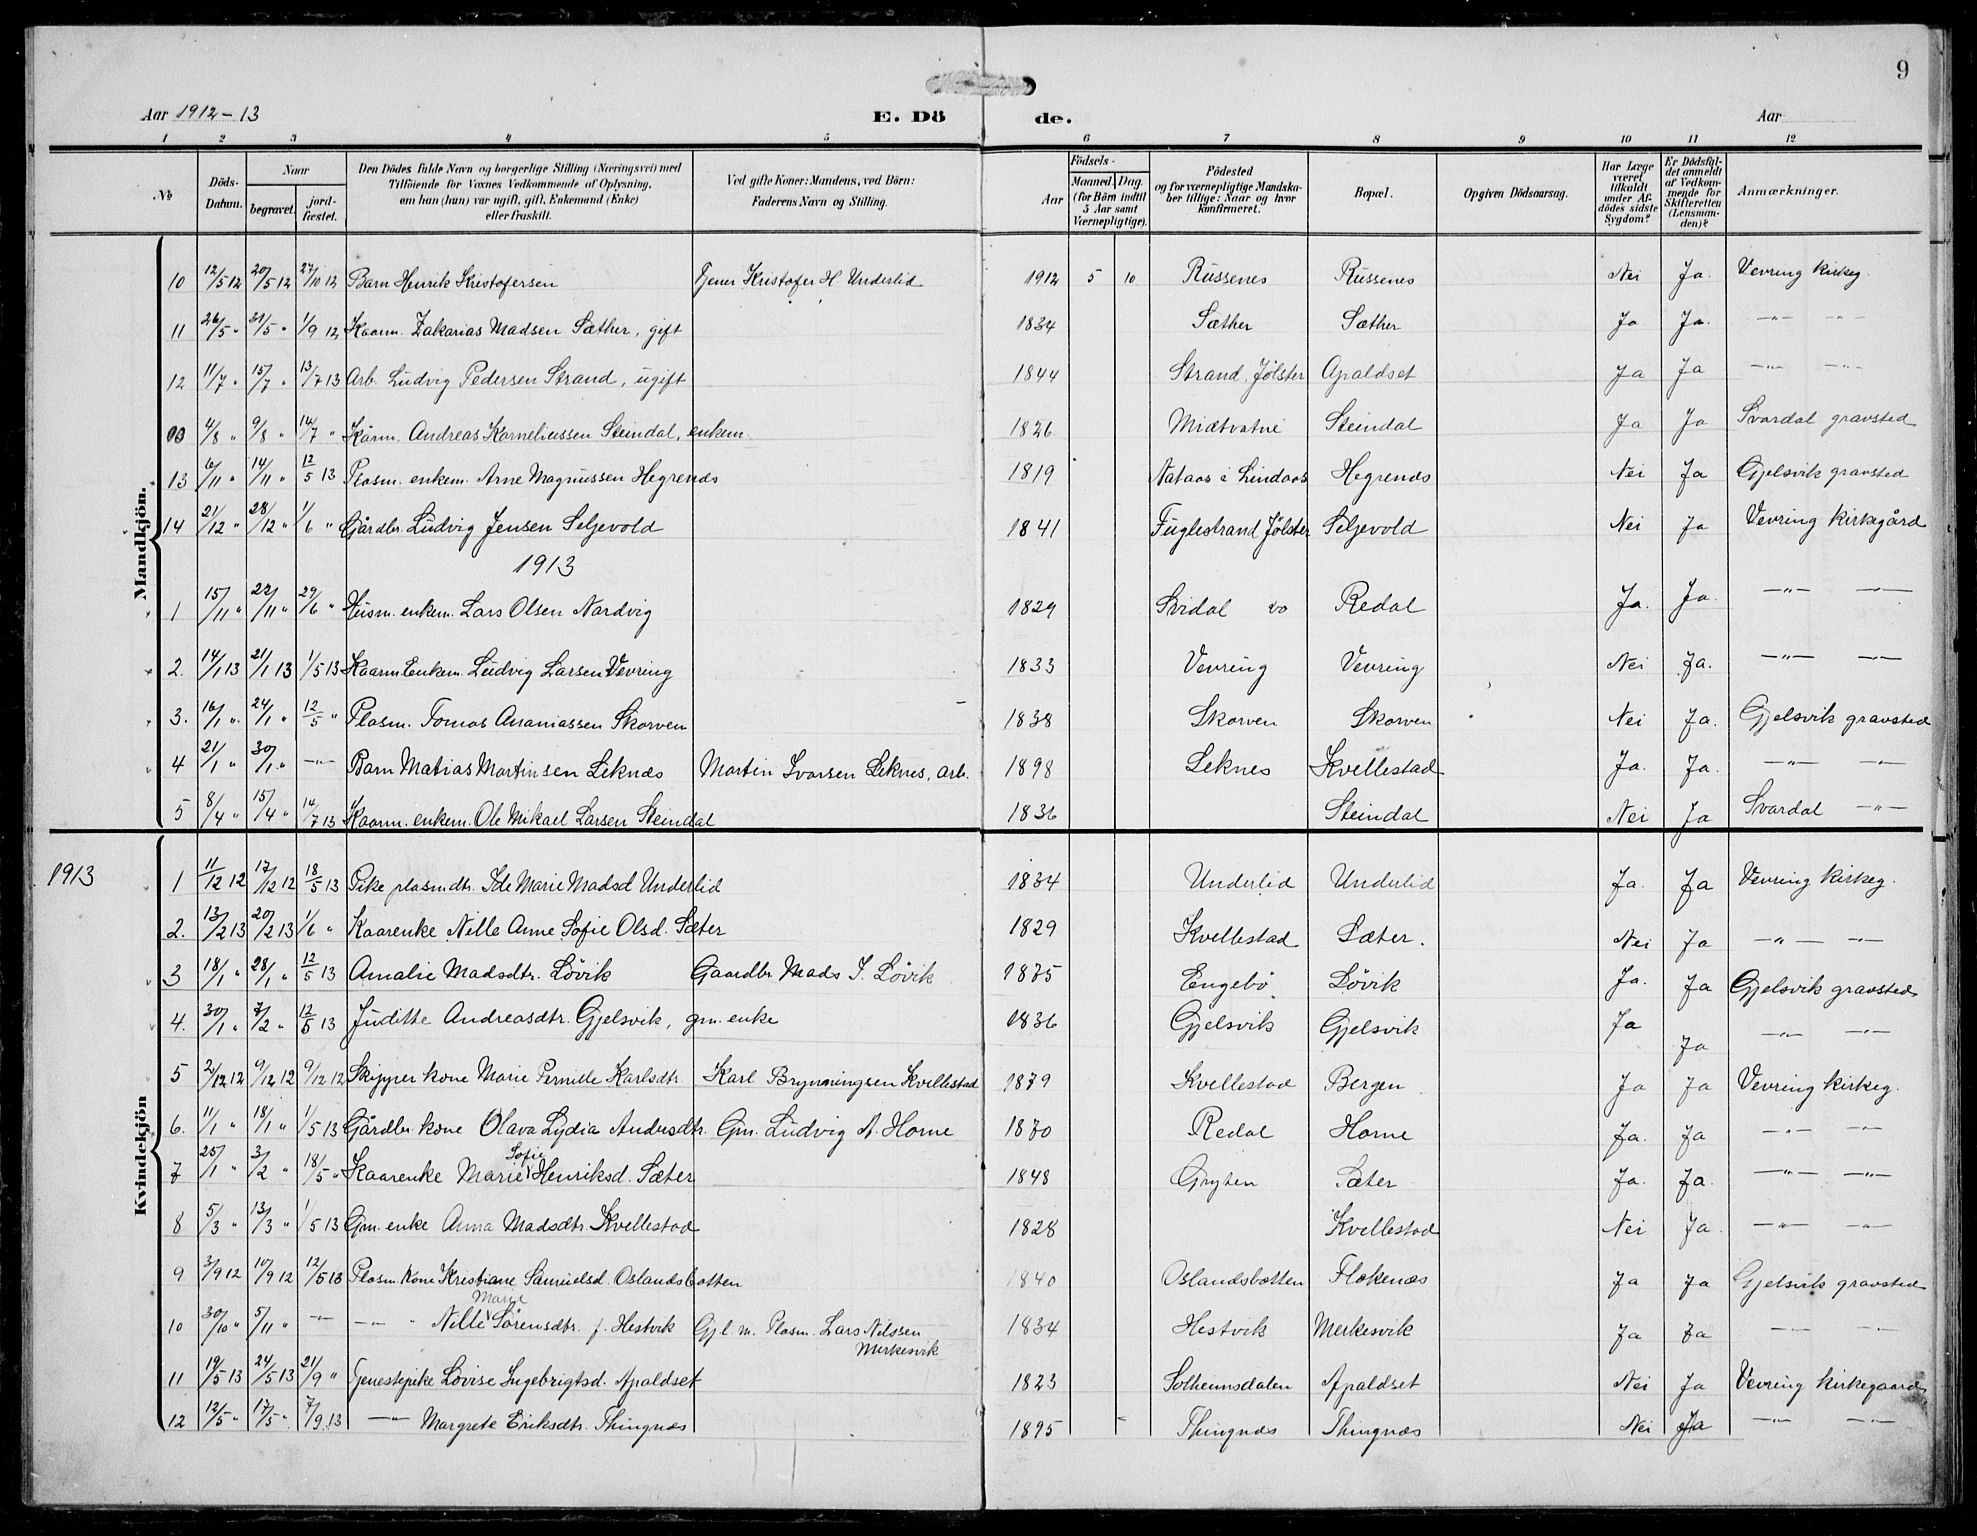 9
Aar 1912-13 E. Dö de. Aar
1 2 3 4 5 6 7 8 9 10 11 12
№ Döds-Datum. Naar begravet. jord-fæstet. Den Dödes fulde Navn og borgerlige Stilling (Næringsvei) med Tilföiende for Voxnes Vedkommende af Oplysning, om han (hun) var ugift, gift, Enkemand (Enke) eller fraskilt. Ved gifte Koner: Mandens, ved Börn: Faderens Navn og Stilling. Födsels- Aar Maaned. Dag. (for Börn indtil 5 Aar samt Værnepligtige). Födested og for værnepligtige Mandskaber tillige: Naar og hvor konfirmeret. Bopæl. Opgiven Dödsaarsag. Har Læge været tilkaldt under Afdödes sidste Sygdom? Er Dödsfaldet anmeldt af Vedkommende for Skifteretten (Lensmanden)? Anmærkninger.
Mandkjön.
10 12/5 12 20/5 12 27/10 12 Barn Henrik Kristofersen Tjener Kristofer H. Underlid 1912 5 10 Russenes Russenes Nei Ja. Vevring kirkeg.
11 26/5 " 31/5 " 1/9 12 Kaarm. Zakarias Madsen Sæther, gift 1834 Sæther Sæther Ja Ja. -"- -"-
12 11/7 " 15/7 " 13/7 13 Arb. Ludvig Pedersen Strand, ugift 1844 Strand, Jølster Apaldset Ja Ja -"- -"-
4/8 " 9/8 " 14/7 " Kårm. Andreas Korneliussen Steindal, enkem. 1826 Midtvatne Steindal Ja Ja Svardal gravsted
13 6/11 " 14/11 " 12/5 13 Plasm. enkem. Arne Magnussen Hegrenæs 1819 Nataas i Lindaas Hegrenæs Nei Ja Gjelsvik gravsted
14 21/12 " 28/12 " 1/6 " Gårdbr. Ludvig Jensen Seljevold 1841 Fuglestrand Jølster Seljevold Nei Ja Vevring kirkegård
1913
1 15/11 " 22/11 " 29/6 " Husm. enkem. Lars Olsen Nardvig 1829 Svidal Redal Ja. Ja. -"- -"-
2. 14/1 13 21/1 13 1/5 13 Kaarm. Enkem. Ludvig Larsen Vevring 1833 Vevring Vevring Nei Ja. -"- -"-
3. 16/1 " 24/1 " 12/5 " Plasm. Tomas Ananiassen Skorven 1838 Skorven Skorven Nei Ja. Gjelsvik gravsted
4 21/1 " 30/1 " -"- Barn Matias Martinsen Leknæs Martin Ivarsen Leknes, arb. 1898 Leknes Kvellestad Ja. Ja. -"- -"-
5 8/4 " 15/4 " 14/7 13 Kaarm. enkem. Ole Mikael Larsen Steindal 1836 Steindal Nei Ja Svardal -"-
1913
Kvindekjön
1 11/12 12 17/12 12 18/5 13 Pike plasmdtr. Ide Marie Madsd Underlid 1834 Underlid Underlid Ja. Ja Vevring kirkeg.
2. 13/2 13 20/2 13 1/6 " Kaarenke Nille Anne Sofie Olsd. Sæter 1829 Kvellestad Sæter. Nei Ja -"- -"-
3 18/1 " 28/1 " 12/5 13 Amalie Madsdtr. Løvik Gaardbr. Mads J. Løvik 1875 Engebø Løvik Ja. Ja Gjelsvik gravsted
4. 30/1 " 7/2 " 12/5 13 Juditte Andreasdtr. Gjelsvik, gm. enke 1836 Gjelsvik Gjelsvik Ja Ja -"- -"-
5 2/12 12 9/12 12 9/12 12 Skipper kone Marie Pernille Karlsdtr. Karl Brynningsen Kvellestad 1879 Kvellestad Bergen Ja Ja Vevring kirkeg.
6. 11/1 " 18/1 " 1/5 13 Gårdbr. kone Olava Lydia Andersdtr. Gm. Ludvig A. Horne 1870 Redal Horne Ja. Ja -"- -"-
7 25/1 " 3/2 " 18/5 " Kaarenke Marie Sofie Henriksd. Sæter 1848 Gryten Sæter Ja. Ja. -"- -"-
8 5/3 " 13/3 " 1/5 13 Gm. enke Anna Madsdtr. Kvellestad 1828 Kvellestad Nei Ja. -"- -"-
9 3/9 12 10/9 12 12/5 13 Plasm. kone Kristiane Samuelsd. Oslandsbotten 1840 Oslandsbotten Flokenæs Ja Ja Gjelsvik gravsted
10 30/10 " 5/11 " -"- -"- " Nille Marie Sörensdtr. f. Hestvik Gjl. m. Plasm. Lars Nilssen Merkesvik 1834 Hestvik Merkesvik Ja Ja -"- -"-
11 19/5 13 24/5 13 21/9 " Tjenestepike Lovise Ingebrigtsd. Apaldset 1823 Solheimsdalen Apaldset Nei Ja Vevring kirkegaard
12 12/5 " 17/5 " 7/9 13 -"- Margrete Eriksdtr. Thingnæs 1895 Thingnæs Thingnæs Nei Ja -"- -"-